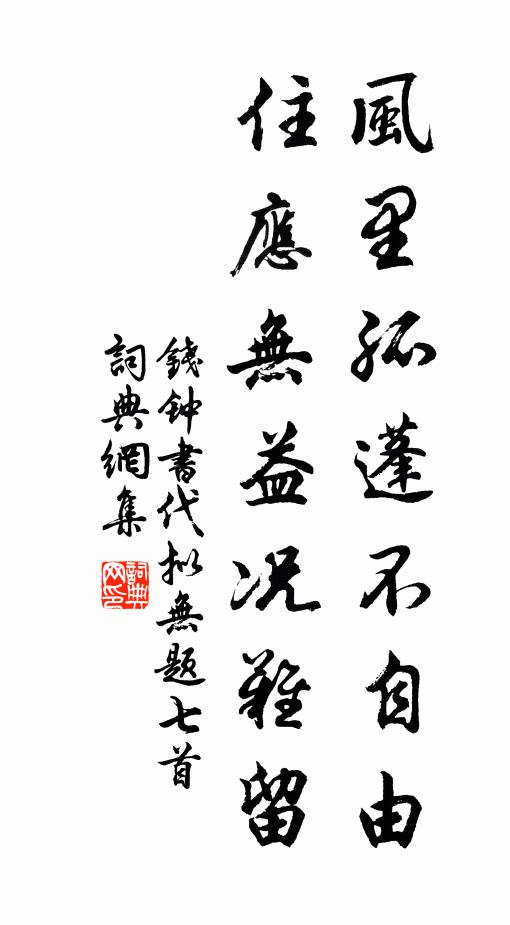 風里孤蓬不自由
住應無益况難留
錢钟書代拟無题七首
詞典網集
詞典网印